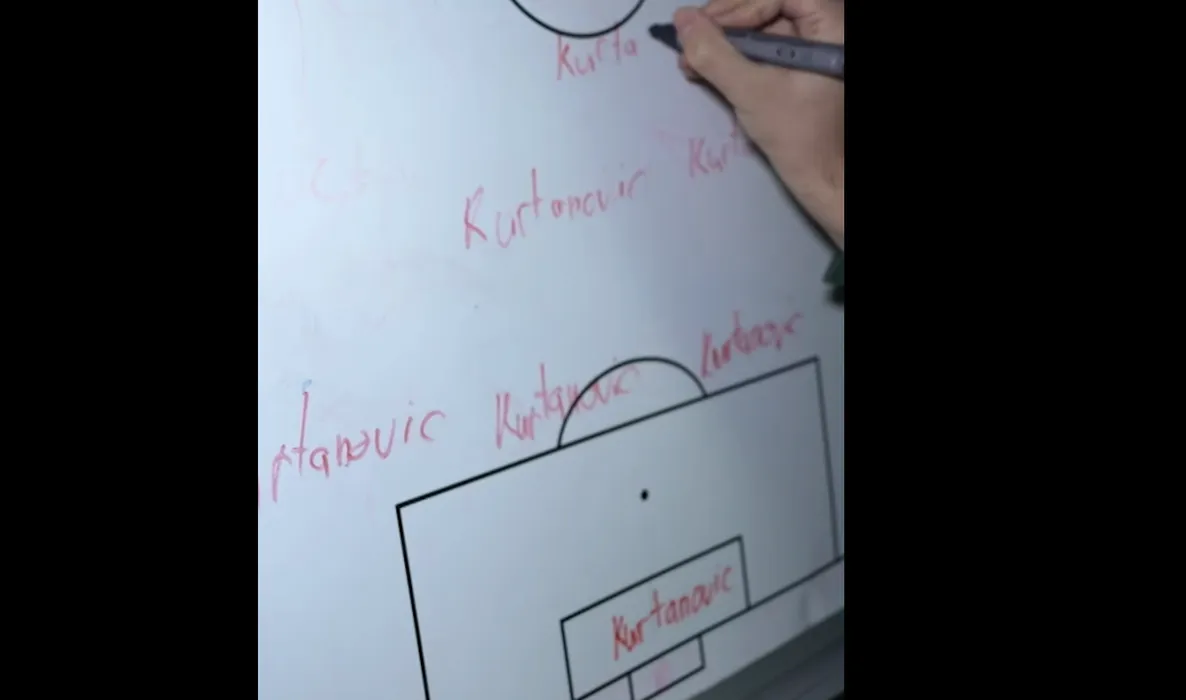 Kurta
Kurtanovic Kurt
rtanovic Kurtanovic Kurtanovic
Kurtanovic